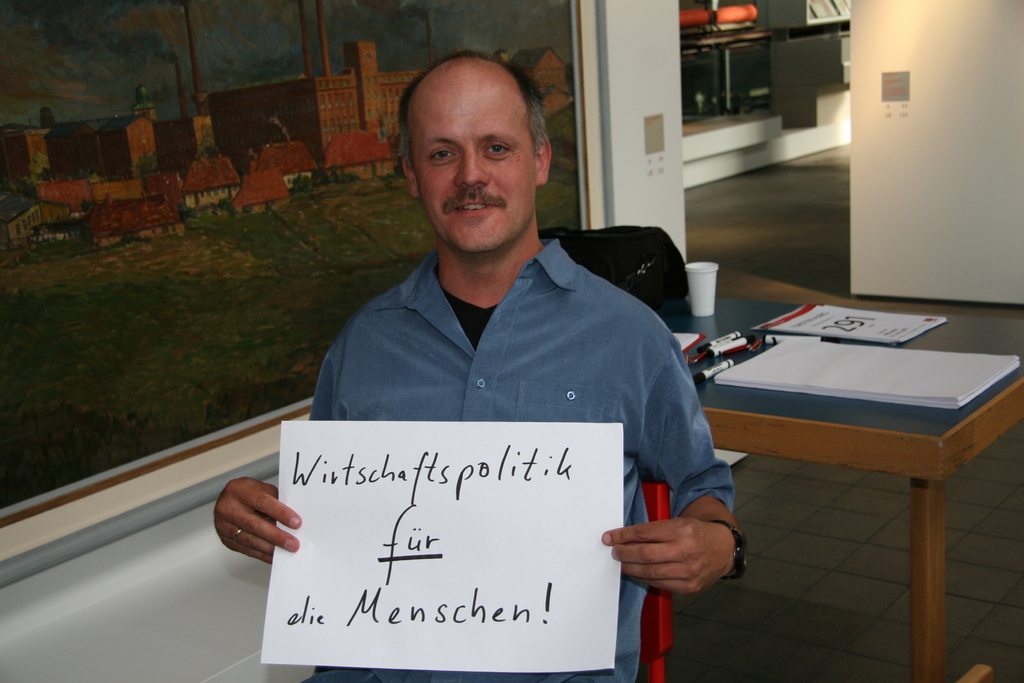 Wirtschaftspolitik
für
die Menschen!
291